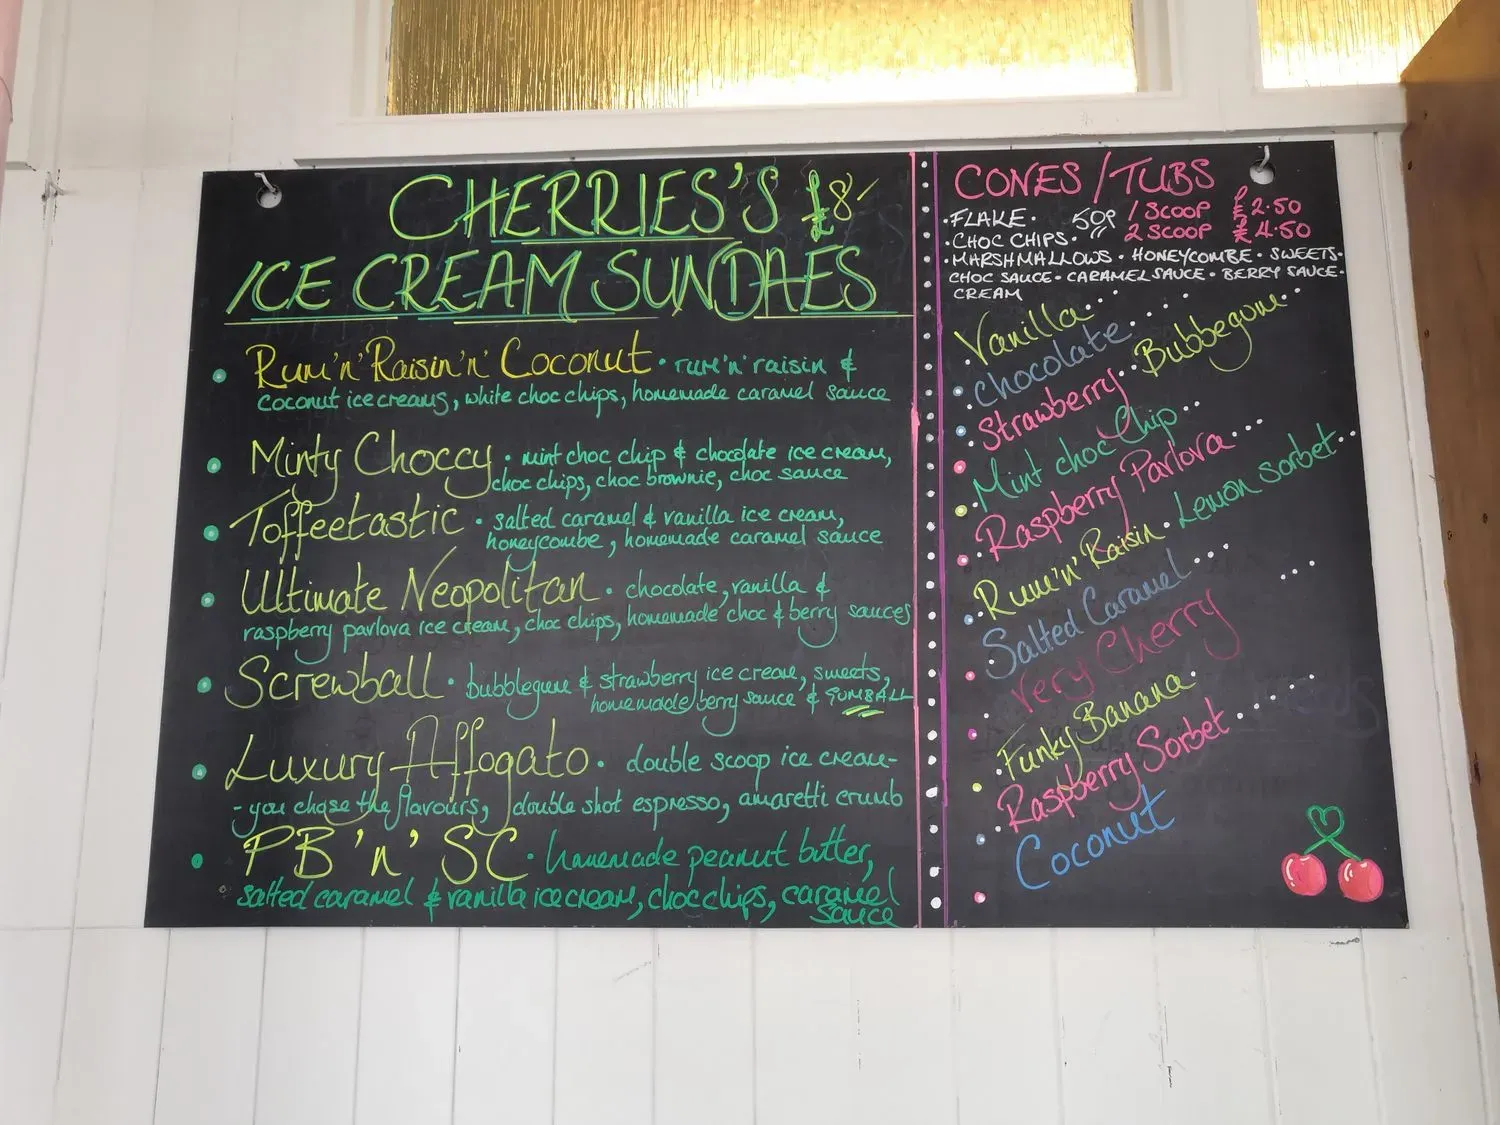 CHERRIES'S £8/
ICE CREAM SUNDAES
Rum'n'Raisin'n'Coconut • rum'n'raisin &
coconut icecreams, white choc chips, homemade caramel sauce
Minty Choccy • mint choc chip & chocolate ice cream,
choc chips, choc brownie, choc sauce
Toffeetastic • salted caramel & vanilla ice cream,
honeycombe, homemade caramel sauce
Ultimate Neopolitan • chocolate, vanilla &
raspberry pavlova ice cream, choc chips, homemade choc & berry sauces
Screwball • bubblegum & strawberry ice cream, sweets,
homemade berry sauce & GUMBALL
Luxury Affogato • double scoop ice cream-
- you chose the flavours, double shot espresso, amaretti crumb
PB 'n' SC • homemade peanut butter,
salted caramel & vanilla icecream, choc chips, caramel
sauce
CONES / TUBS
• FLAKE • 50p 1 SCOOP £2.50
• CHOC CHIPS • 2 SCOOP £4.50
• MARSHMALLOWS • HONEYCOMBE • SWEETS •
CHOC SAUCE • CARAMEL SAUCE • BERRY SAUCE •
CREAM
Vanilla...
chocolate... Bubbegum..
Strawberry..
Mint choc Chip..
Raspberry Pavlova...
Rum'n'Raisin • Lemon sorbet..
Salted Caramel...
Very Cherry ...
Funky Banana.
Raspberry Sorbet......
Coconut